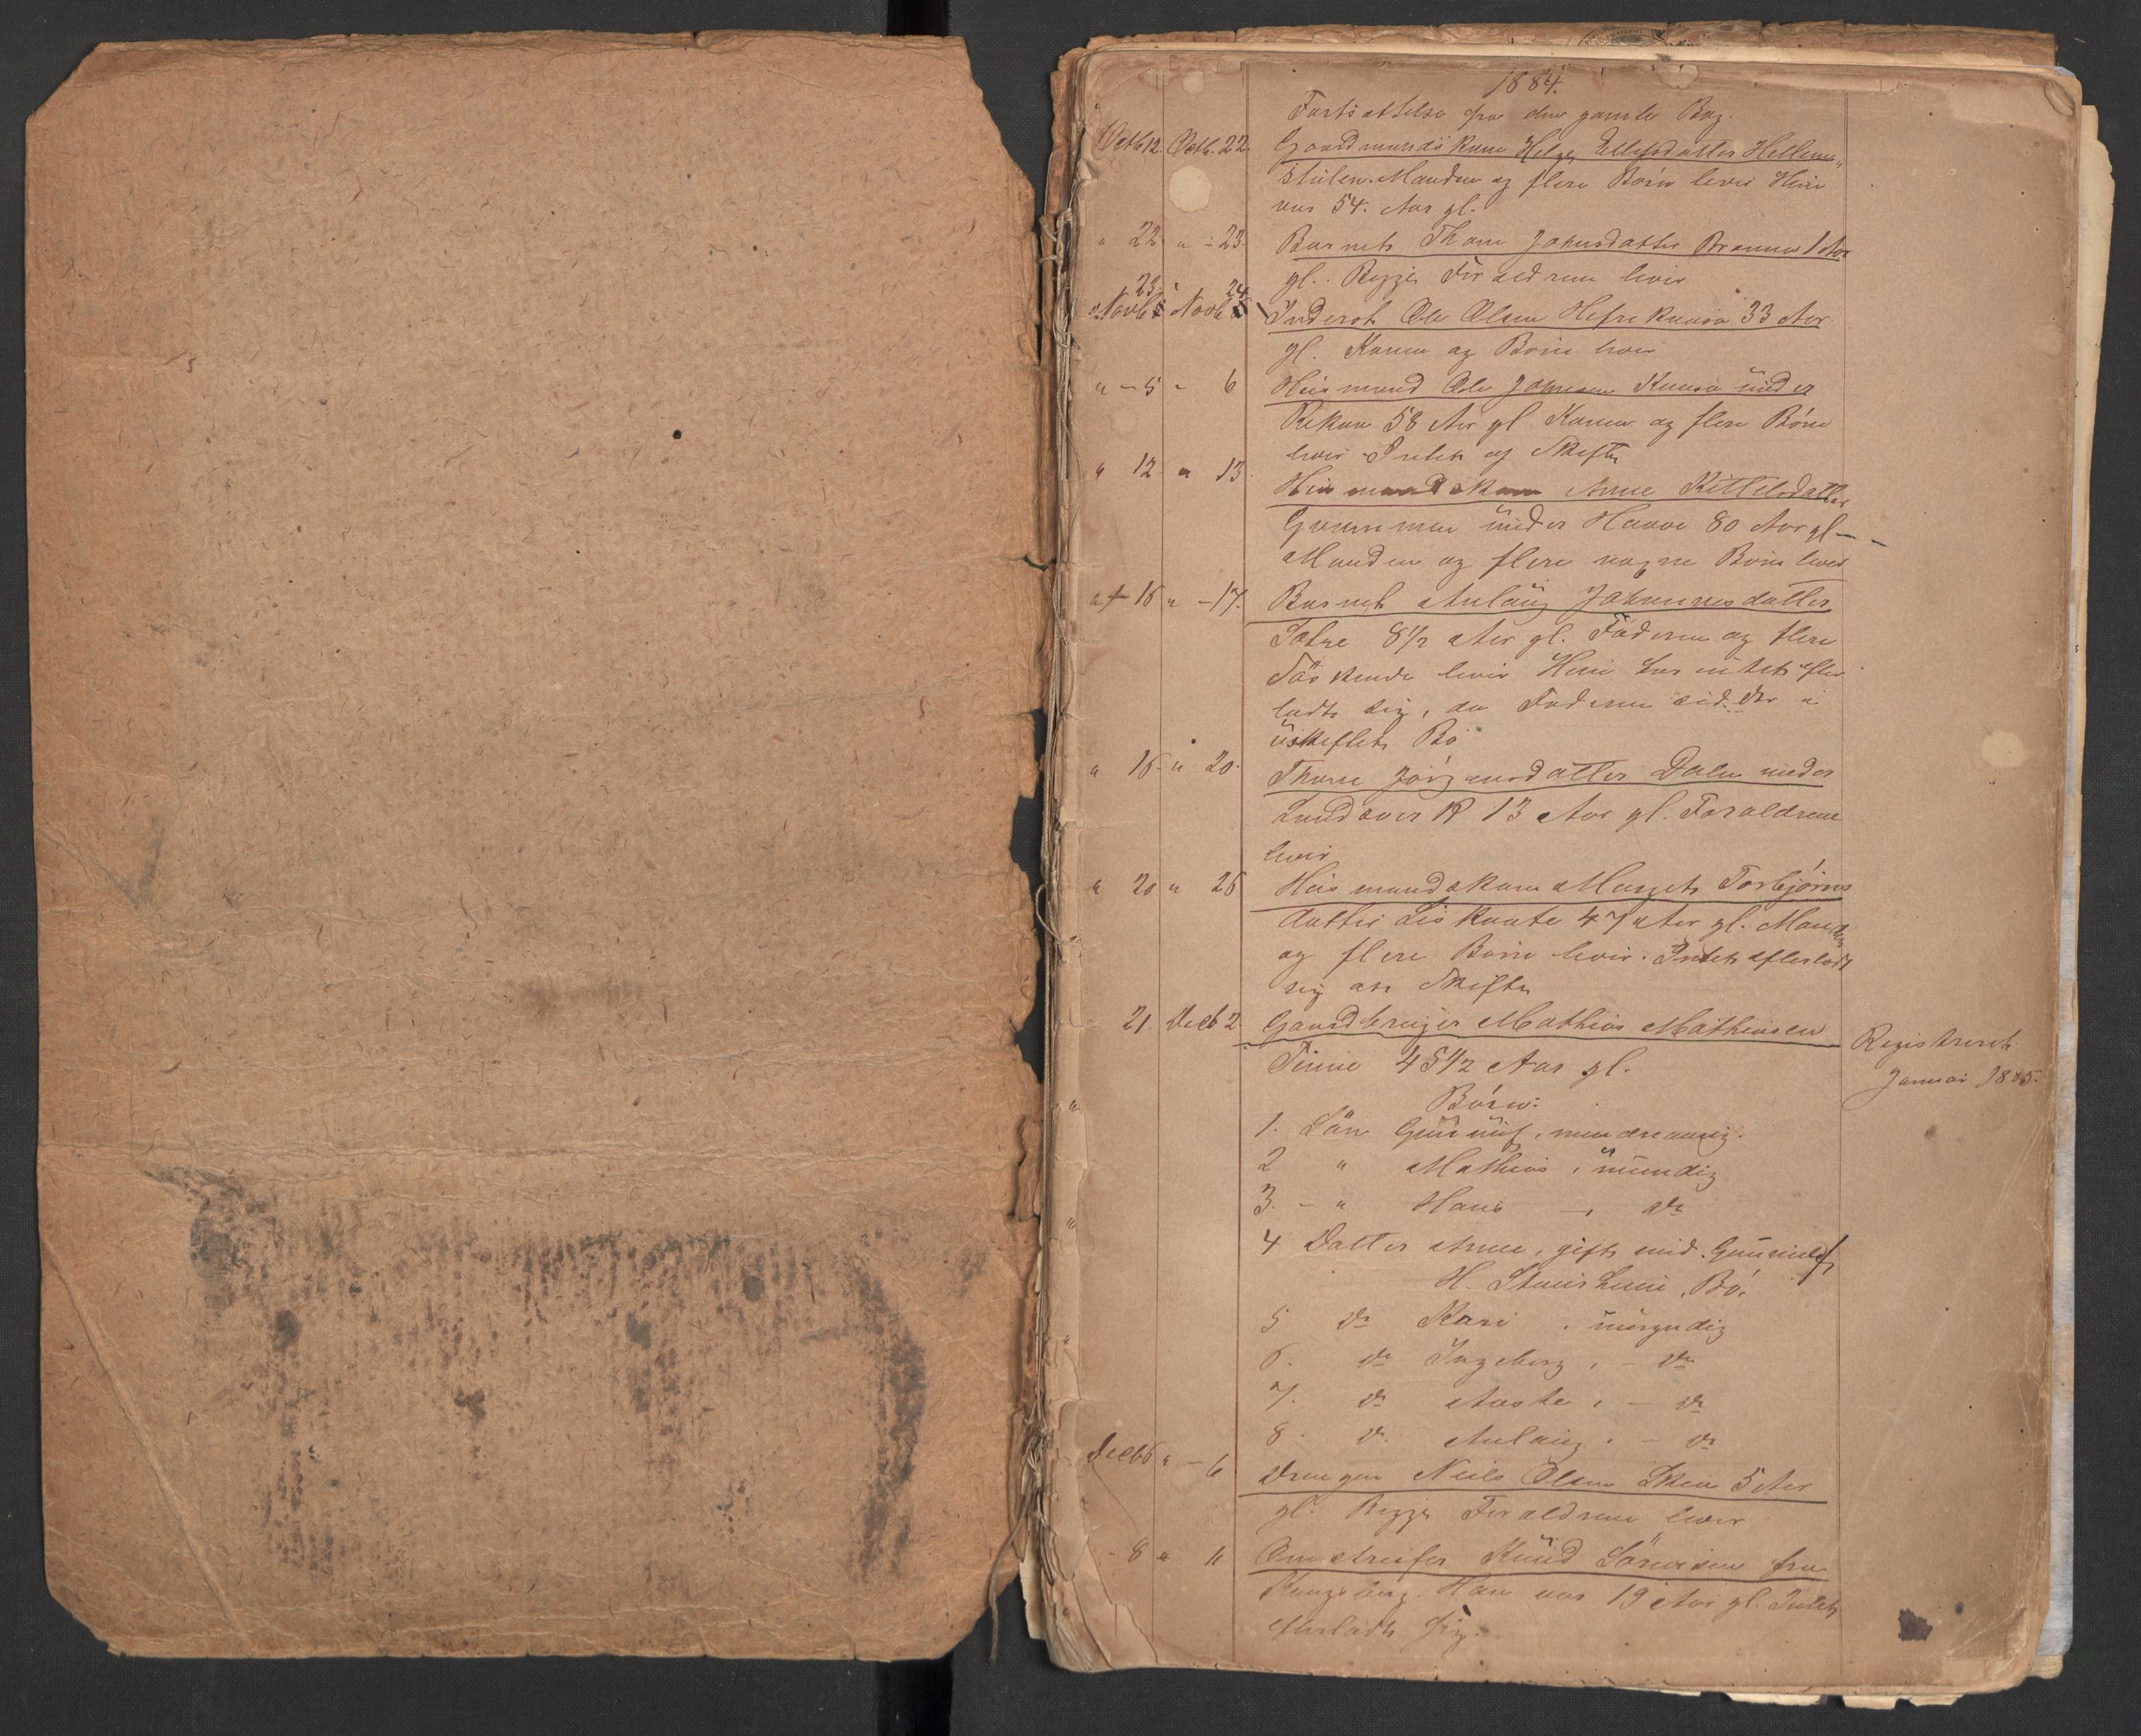 1884.
Fortsættelse fra den gamle Bog.
Octb 12. Octb. 22. Gaardmands Kone Helge Ellefsdatter Hellem„
stulen. Manden og flere Børn lever Hun
var 54. Aar gl.
" 22 " - 23. Barnet Thone Johnsdatter 1 Aar
gl. Begge Forældrene lever
23 24
Novb Novb Inderst Ole Olsen 33 Aar
gl. Konen og Børn lever
" - 5 " 6 Husmand Ole Johnsen Kaasa under
58 Aar gl Konen og flere Børn
lever Intet og Skifte
" 12 " 13 Anne Kittelsdatter
under Haave 80 Aar gl - -
Manden og flere voxne Børn lever
" 16 " - 17. Barnet Aslaug Johannesdatter
8 1/2 Aar gl. Faderen og flere
Søskende lever Hun har intet efter
ladt sig, da Faderen sidder i
uskiftet Bo
" 16. " 20. Thone Jørgensdatter Dalen under
13 Aar gl. Forældrene
lever
" 20 " 26 Husmandskone Margit Torbjørns
datter 47 Aar gl. Manden
og flere Børn lever. Intet efterladt
sig at Skifte
21. Decb 2 Gaardbruger Mathias Mathiasen
45 1/2 Aar gl.
Registreret
Januar 1885.
Børn:
1. Søn Gunnulf, mindreaarig.
2 " Mathias, umyndig
3. - " Hans -, do
4 Datter Anne, gift med Gunnulf
H. Bø.
5 do Kari, umyndig
6. do Ingeborg, - do
7. do Aaste, - do
8. do Aslaug, - do
Decb 6 " - 6 Drengen Neils Olsen 5 Aar
gl. Begge Forældrene lever
- 8 " 11 Omstreifer Knud Sørensen fra
Kongsberg. Han var 19 Aar gl. Intet
efterladt sig.